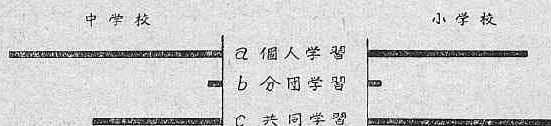 中学校 小学校
a 個人学習
b 分団学習
c 共同学習